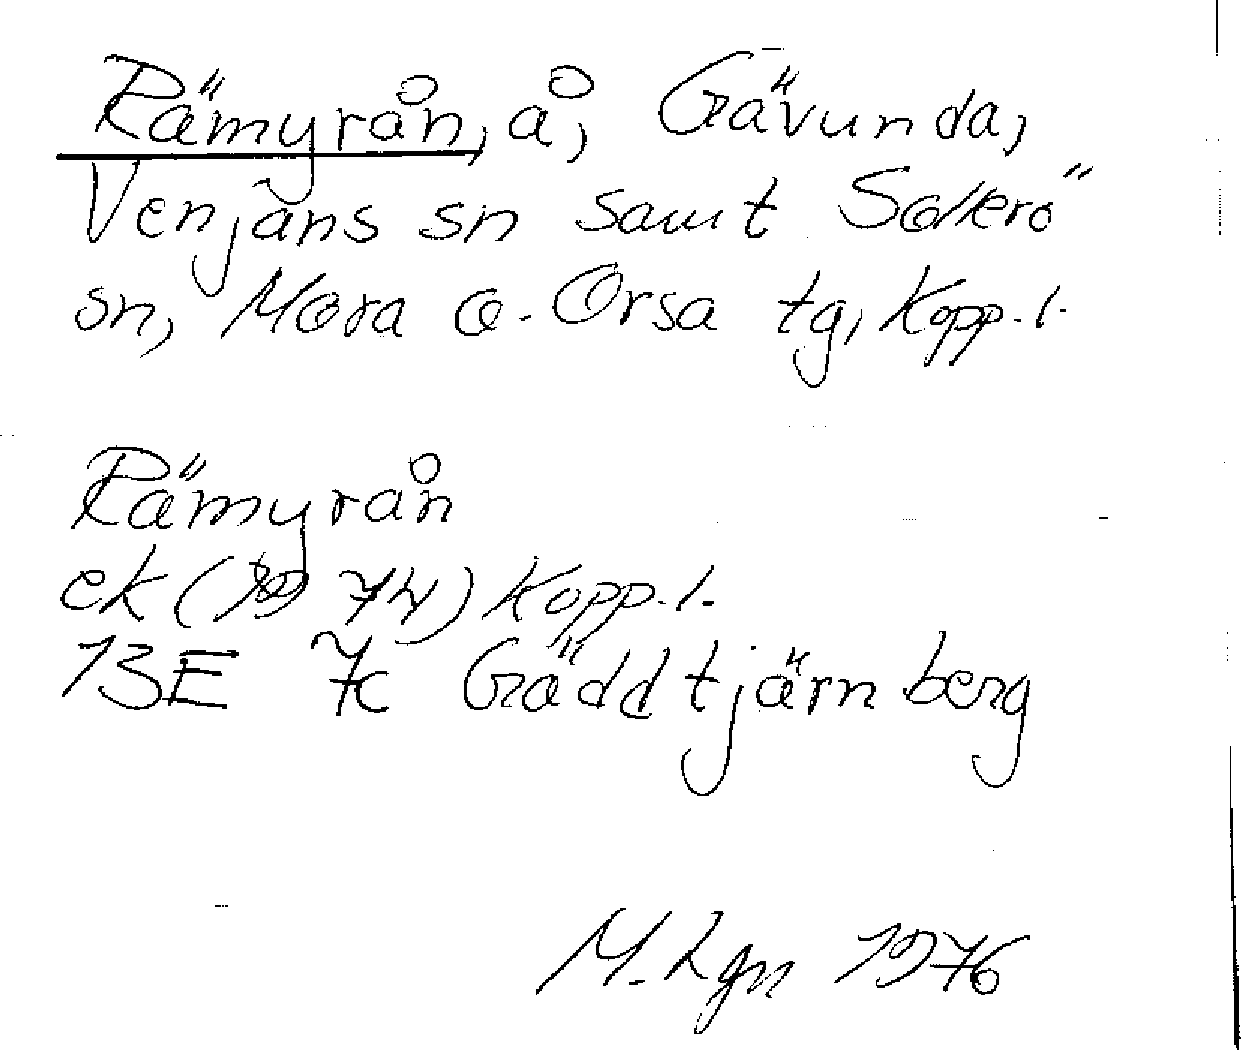 Rämyrån, å, Gävunda,
Venjans sn samt Sollerö
sn, Mora o. Orsa tg, Kopp. l.
Rämyrån
ek ( 74) Kopp. l.
13E 7c Gäddtjärnberg
M. Lgn 1976